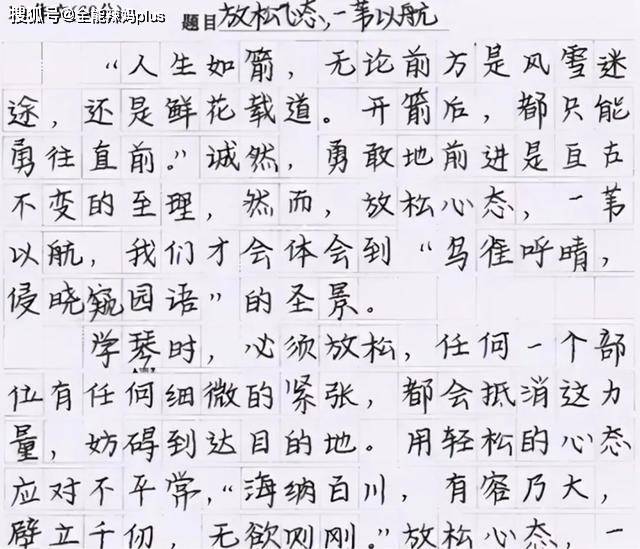 搜狐号@全能辣妈plus
题目 放松心态，一苇以航
“人生如箭，无论前方是风雪迷
途，还是鲜花载道。开箭后，都只能
勇往直前。”诚然，勇敢地前进是亘古
不变的至理，然而，放松心态，一苇
以航，我们才会体会到“鸟雀呼晴，
侵晓窥园语”的圣景。
学琴时，必须放松，任何一个部
位有任何细微的紧张，都会抵消这力
量，妨碍到达目的地。用轻松的心态
应对不平常，“海纳百川，有容乃大，
壁立千仞，无欲则刚。”放松心态，一